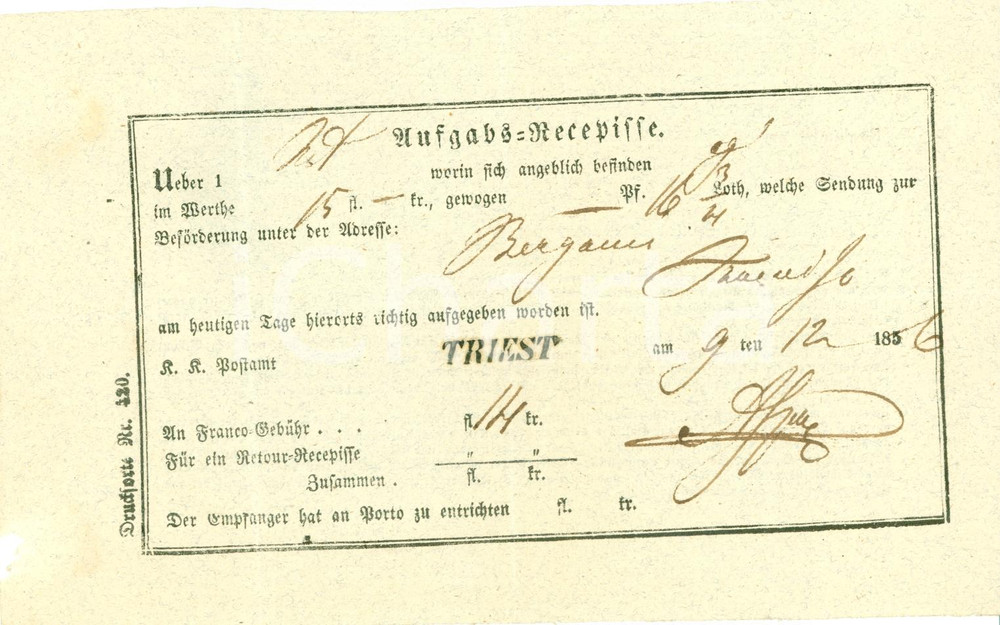 Aufgabs-Recepisse.
Ueber 1 worin sich angeblich befinden
im Werthe 15 fl. — kr., gewogen — Pf. 16 3/4 Loth, welche Sendung zur
Beförderung unter der Adresse:
am heutigen Tage hierorts richtig aufgegeben worden ist.
K. K. Postamt TRIEST am 9 ten 12 1856
An Franco-Gebühr . . . fl. 14 kr.
Für ein Retour-Recepisse " "
Zusammen . fl. kr.
Der Empfanger hat an Porto zu entrichten fl. kr.
Drucksorte Nr. 420.